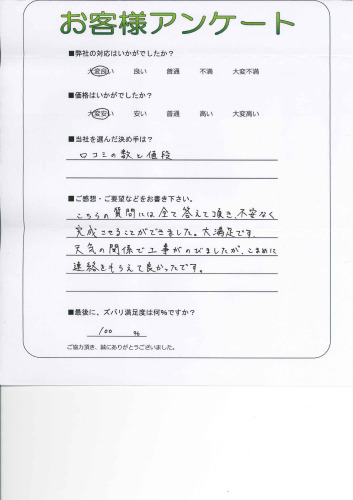 お客様アンケート
■弊社の対応はいかがでしたか?
大変良い 良い 普通 不満 大変不満
■価格はいかがでしたか?
大変安い 安い 普通 高い 大変高い
■当社を選んだ決め手は?
口コミの数と値段
■ご感想・ご要望などをお書き下さい。
こちらの質問には全て答えて頂き、不安なく
完成させることができました。大満足です。
天気の関係で工事がのびましたが、こまめに
連絡をもらえて良かったです。
■最後に、ズバリ満足度は何%ですか?
100 %
ご協力頂き、誠にありがとうございました。